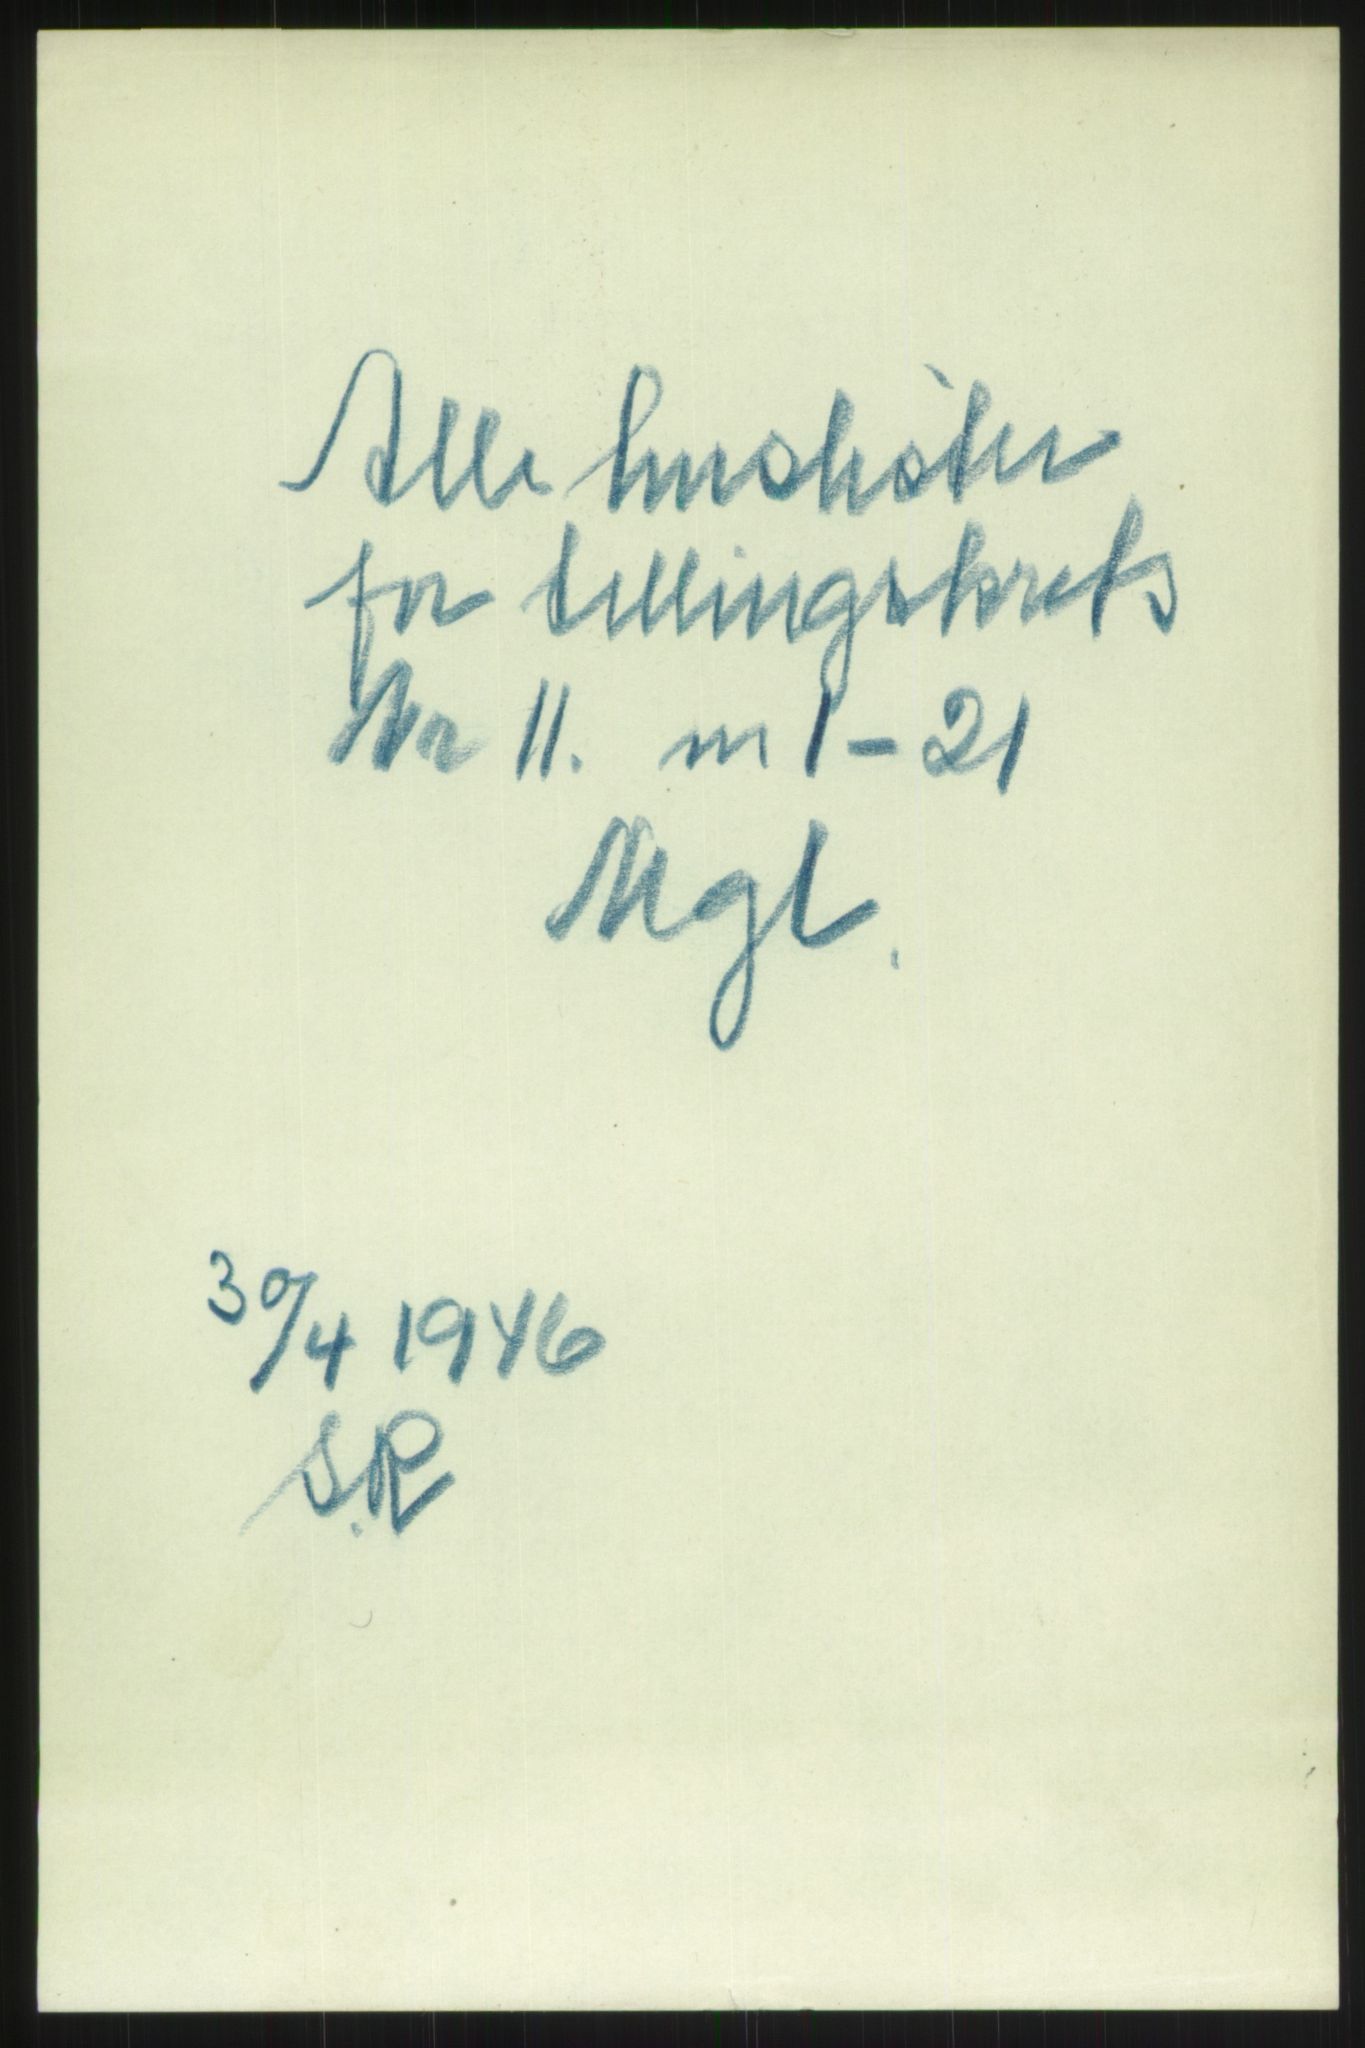 Alle huslister
for tellingskrets
Nr 11. nr 1 - 21
Mgl.
30/4 1946
S.R